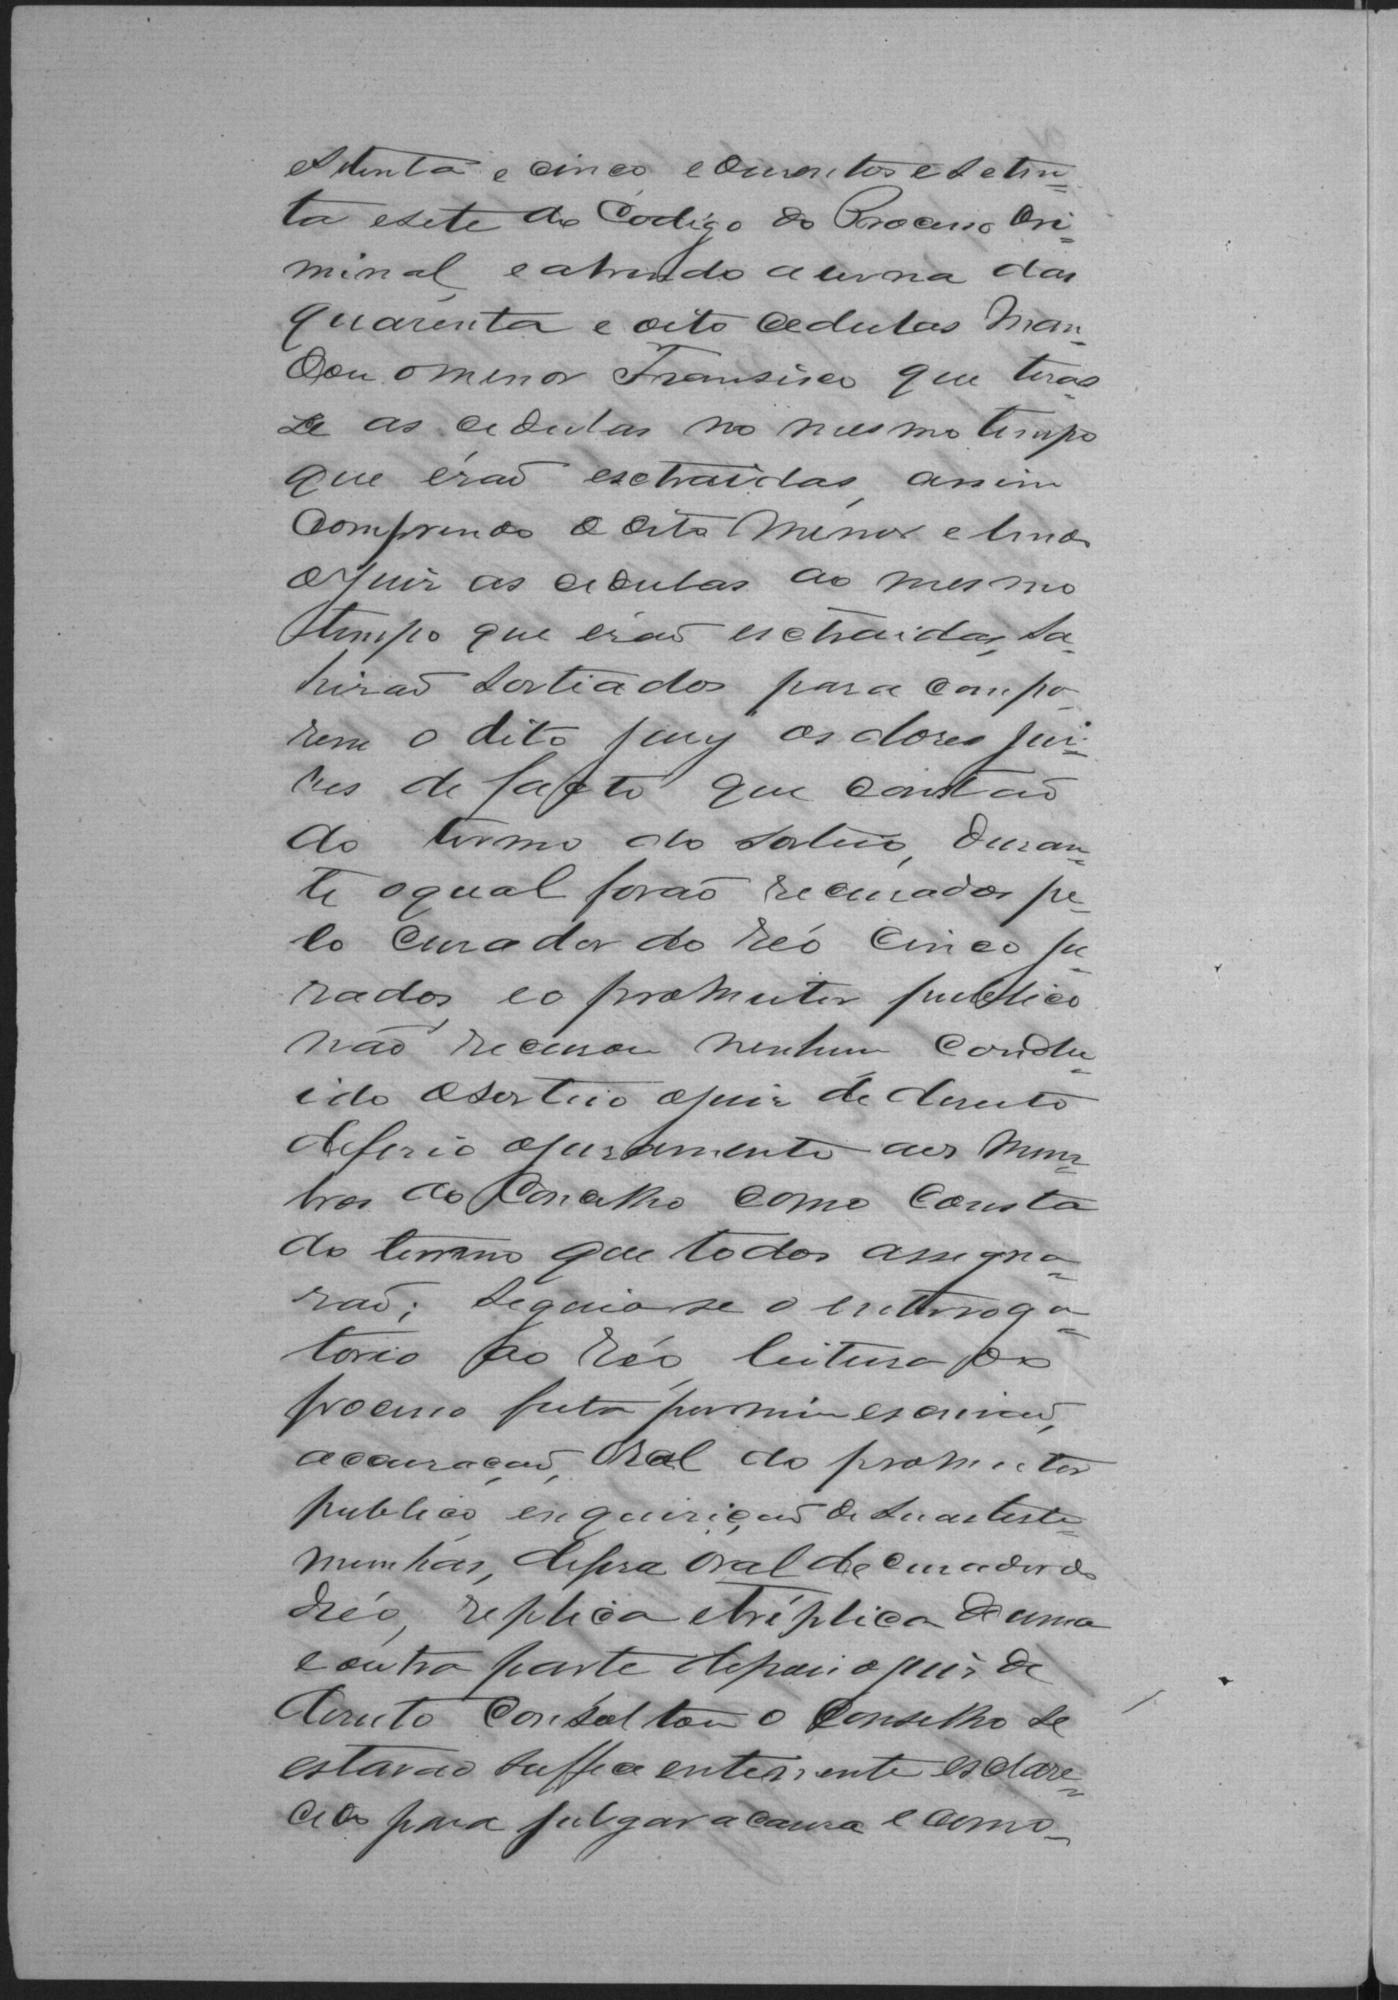 setenta e cinco e dusentos e seten=
ta e sete do Codigo do Processo Cri=
minal, e abrindo a urna das
quarenta e oito cedulas man=
dou o menor Fransisco que tiras=
se as cedulas no mesmo tempo
que érão esctraidas, assim
comprindo o dito menor e lendo
o juiz as cedulas ao mesmo
tempo que érão esctraidas, sa=
hirão sortiados para compo=
rem o dito jury os doses jui=
zes de facto que constão
do termo do sorteio, duran=
te o qual forão recusados pe=
lo curador do réo cinco ju=
rados, e o promutor publico
não recusou nenhum conclu=
ido o sorteio o juiz de direito
deferio o juramento aos mem=
bros do Concelho como consta
do termo que todos assigna=
rão; seguio-se o enterroga=
torio ao réo, leitura do
processo feita por mim escrivão,
accusação, oral do promutor
publico, enquirição de suas teste=
munhas, defesa oral do curador do
réo, replica e triplica de uma
e outra parte depois o juiz de
direito consultou o Conselho se
estavão sufficientemente esclare=
cidos para julgar a causa e como=